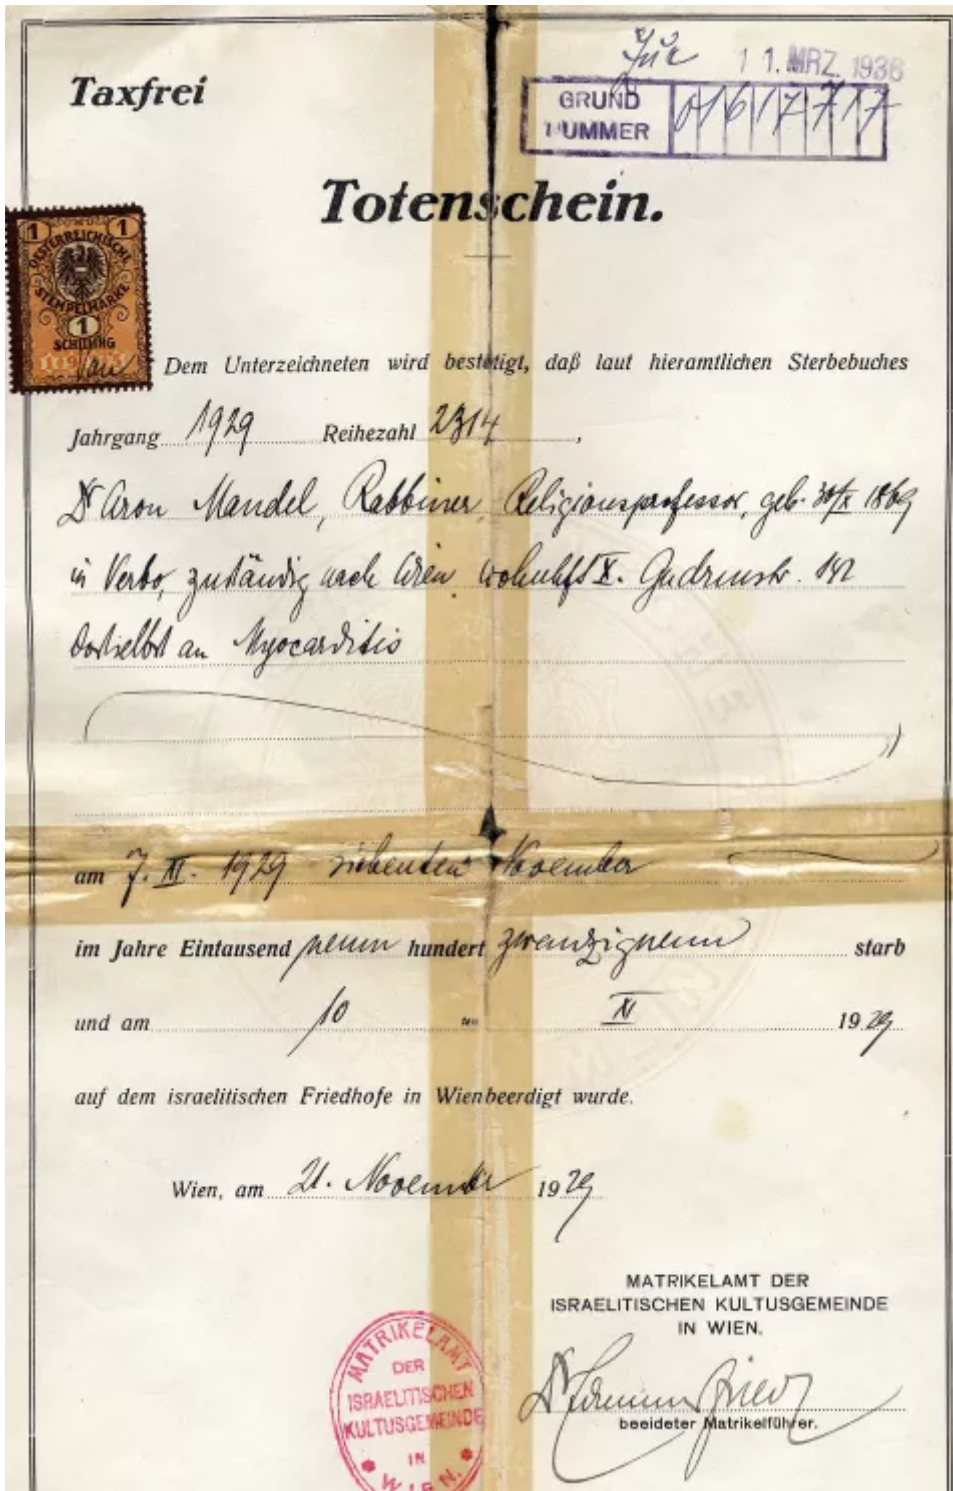 Taxfrei
11. MRZ. 1936
GRUND
NUMMER
Totenschein.
1 1
OESTERREICHISCHE
STEMPELMARKE
1
SCHILLING
Dem Unterzeichneten wird bestätigt, daß laut hieramtlichen Sterbebuches
Jahrgang 1929 Reihezahl 2314,
Dr Aron Mandel, Rabbiner, Religionsprofessor, geb. 30/X 1869
in Verbo, zuständig nach Wien, wohnhft X. Gudrunstr.
dortselbst an Myocarditis
am 7. XI. 1929 siebenten November
im Jahre Eintausend neun hundert zwanzigneun starb
und am 10 ten XI 1929
auf dem israelitischen Friedhofe in Wien beerdigt wurde.
Wien, am 21. November 1929
MATRIKELAMT DER
ISRAELITISCHEN KULTUSGEMEINDE
IN WIEN.
beeideter Matrikelführer.
MATRIKELAMT
DER
ISRAELITISCHEN
KULTUSGEMEINDE
IN
WIEN.